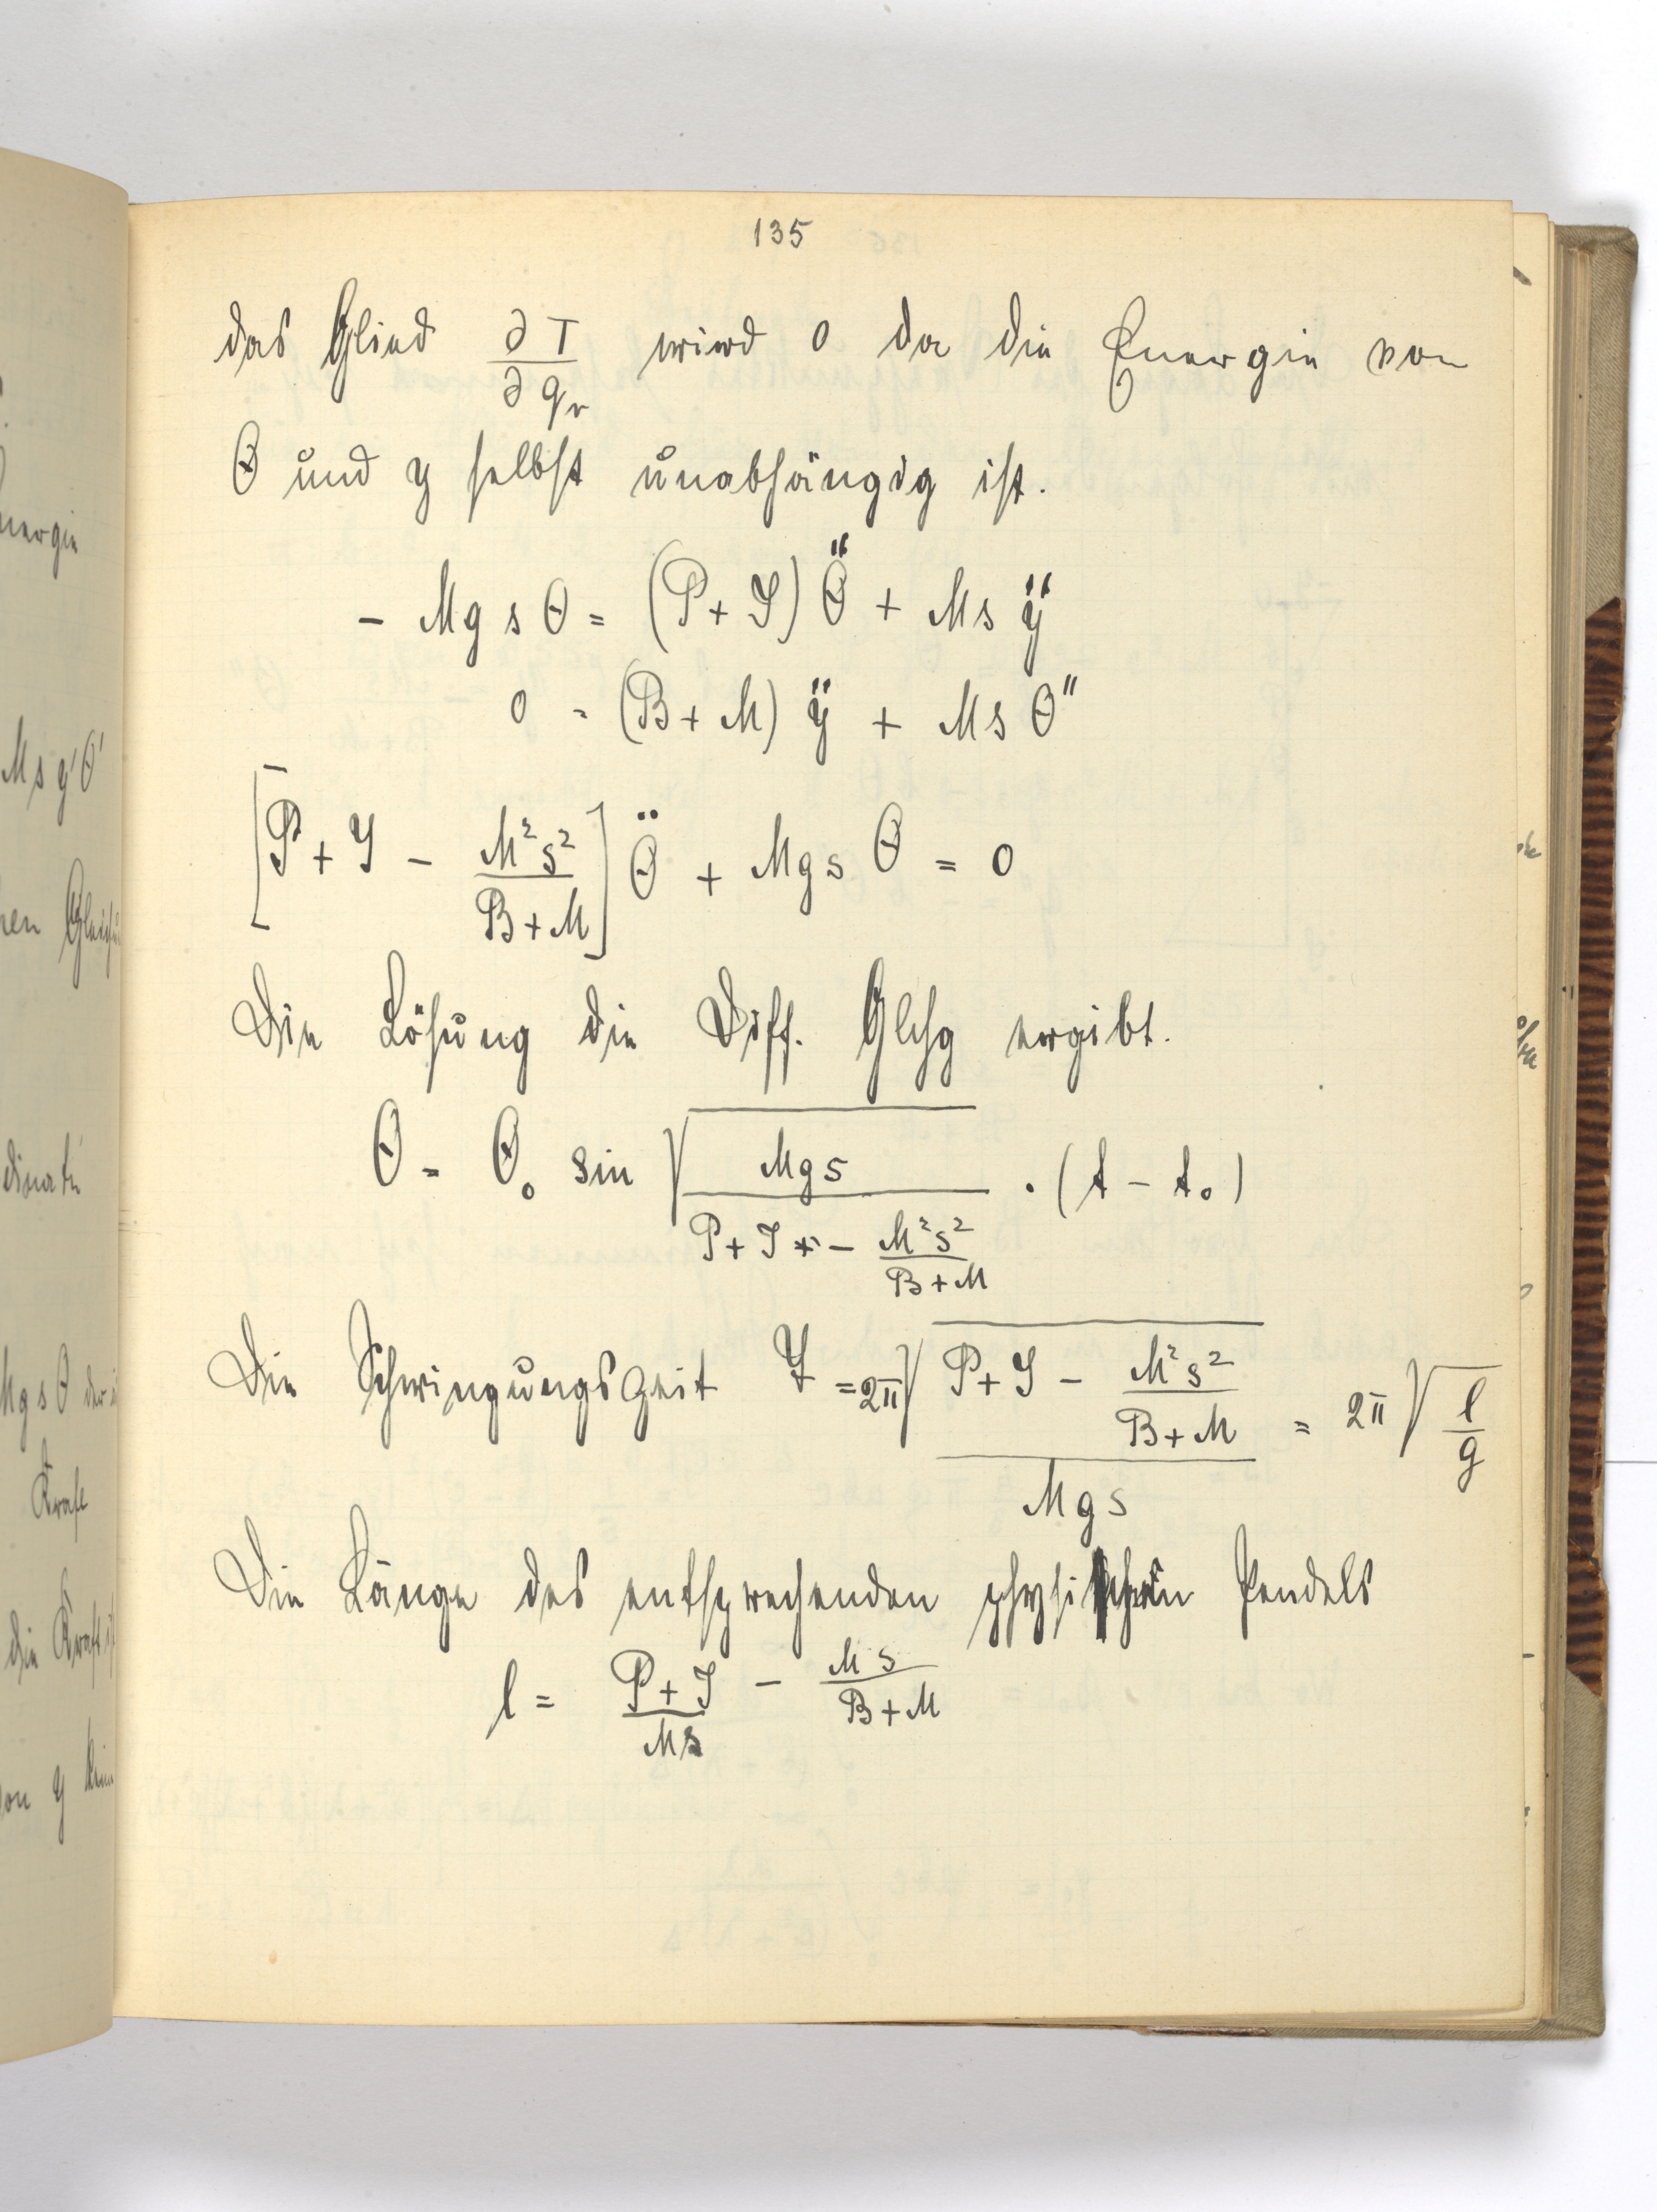 135
das Glied ∂T/∂qᵥ wird 0 da die Energie von
Θ und y selbst unabhängig ist.
- Mg s Θ = (P + J) Θ̈ + Ms ÿ
0 = (B + M) ÿ + Ms Θ"
[P + J - M²s²/(B+M)] Θ̈ + Mgs Θ = 0
Die Lösung die Diff. Glchg ergibt.
Θ = Θ₀ sin √(Mgs/(P + J - M²s²/(B+M))) · (t - t₀)
Die Schwingungszeit = 2π √((P + J - M²s²/(B+M))/Mgs) = 2π √(l/g)
Die Länge des entsprechenden Pendels
l = (P + J)/Ms - Ms/(B+M)
nergie
Ms y'Θ'
Mgs Θ
Kraft
die Kraft